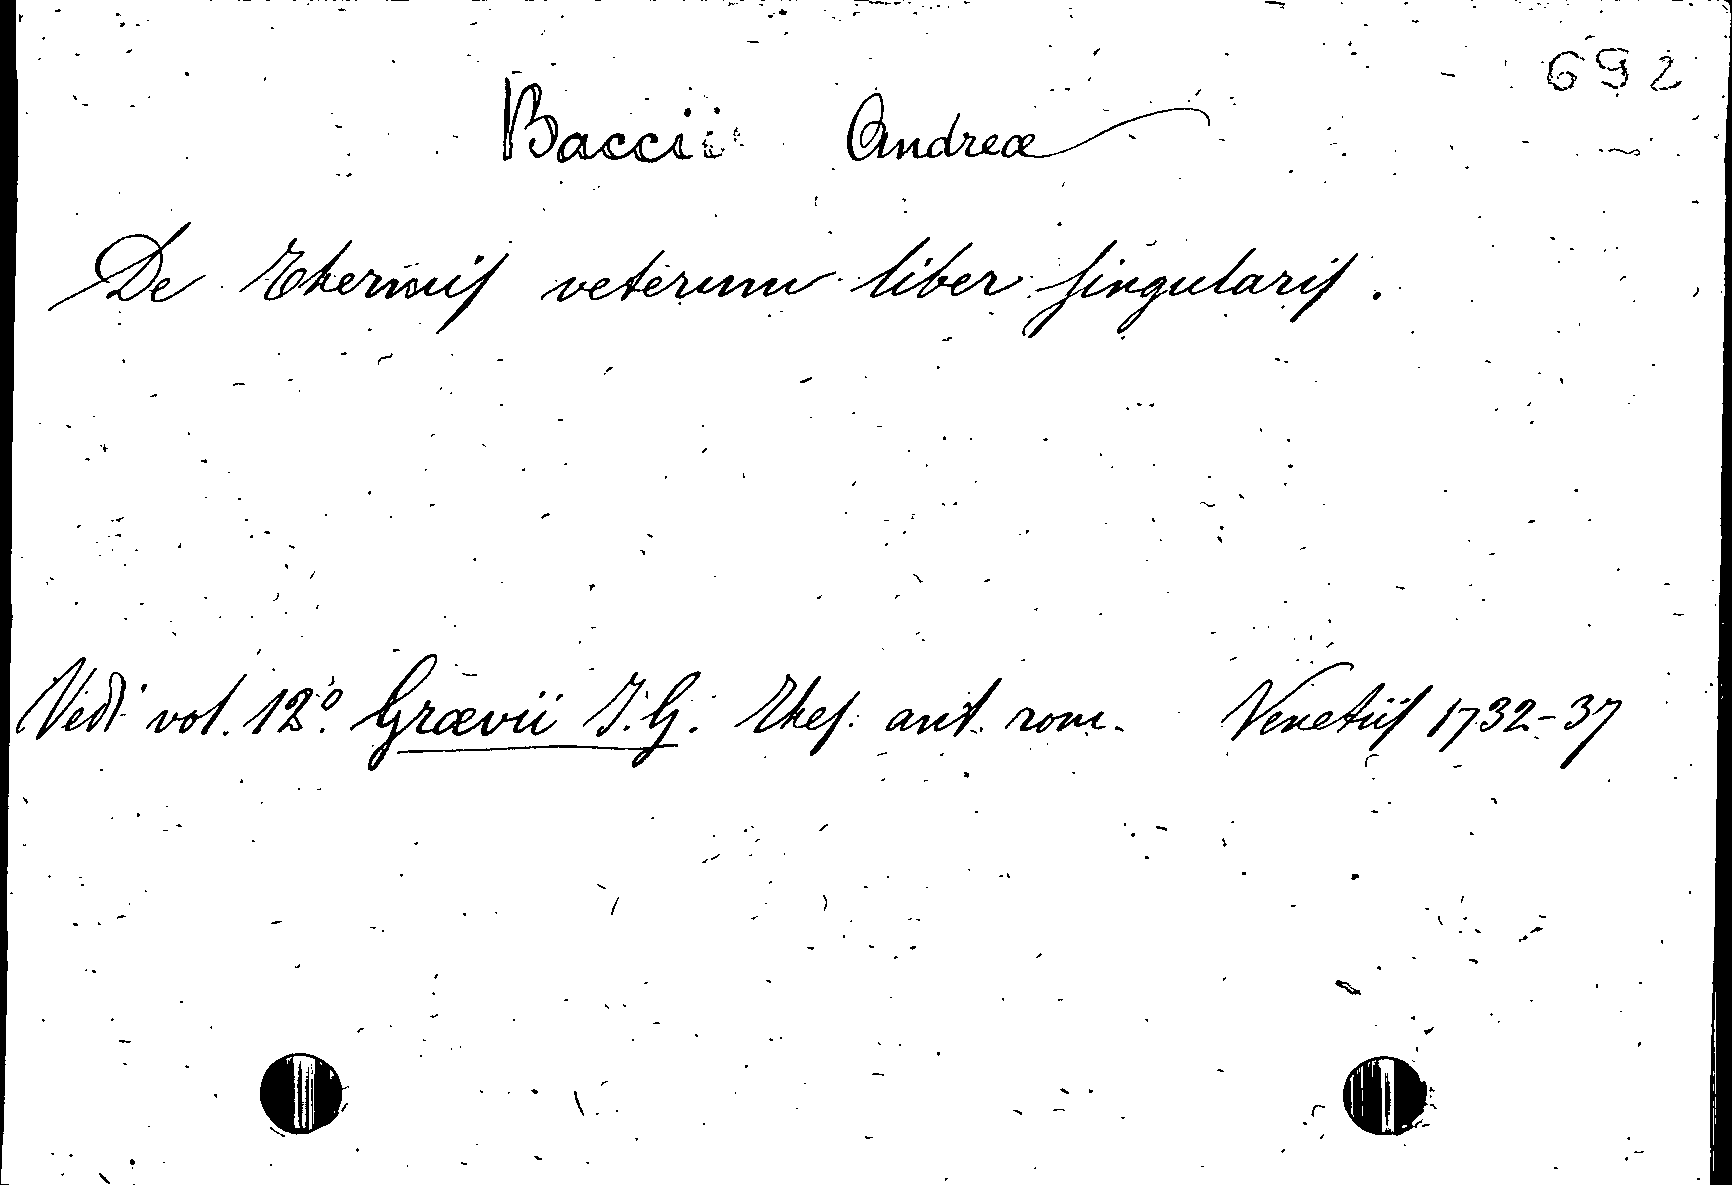 692
Baccii Andreæ
De Thermis veterum liber singularis.
Vedi vol. 12.º Grævii J. G. Thes. ant. rom. Venetiis 1732-37